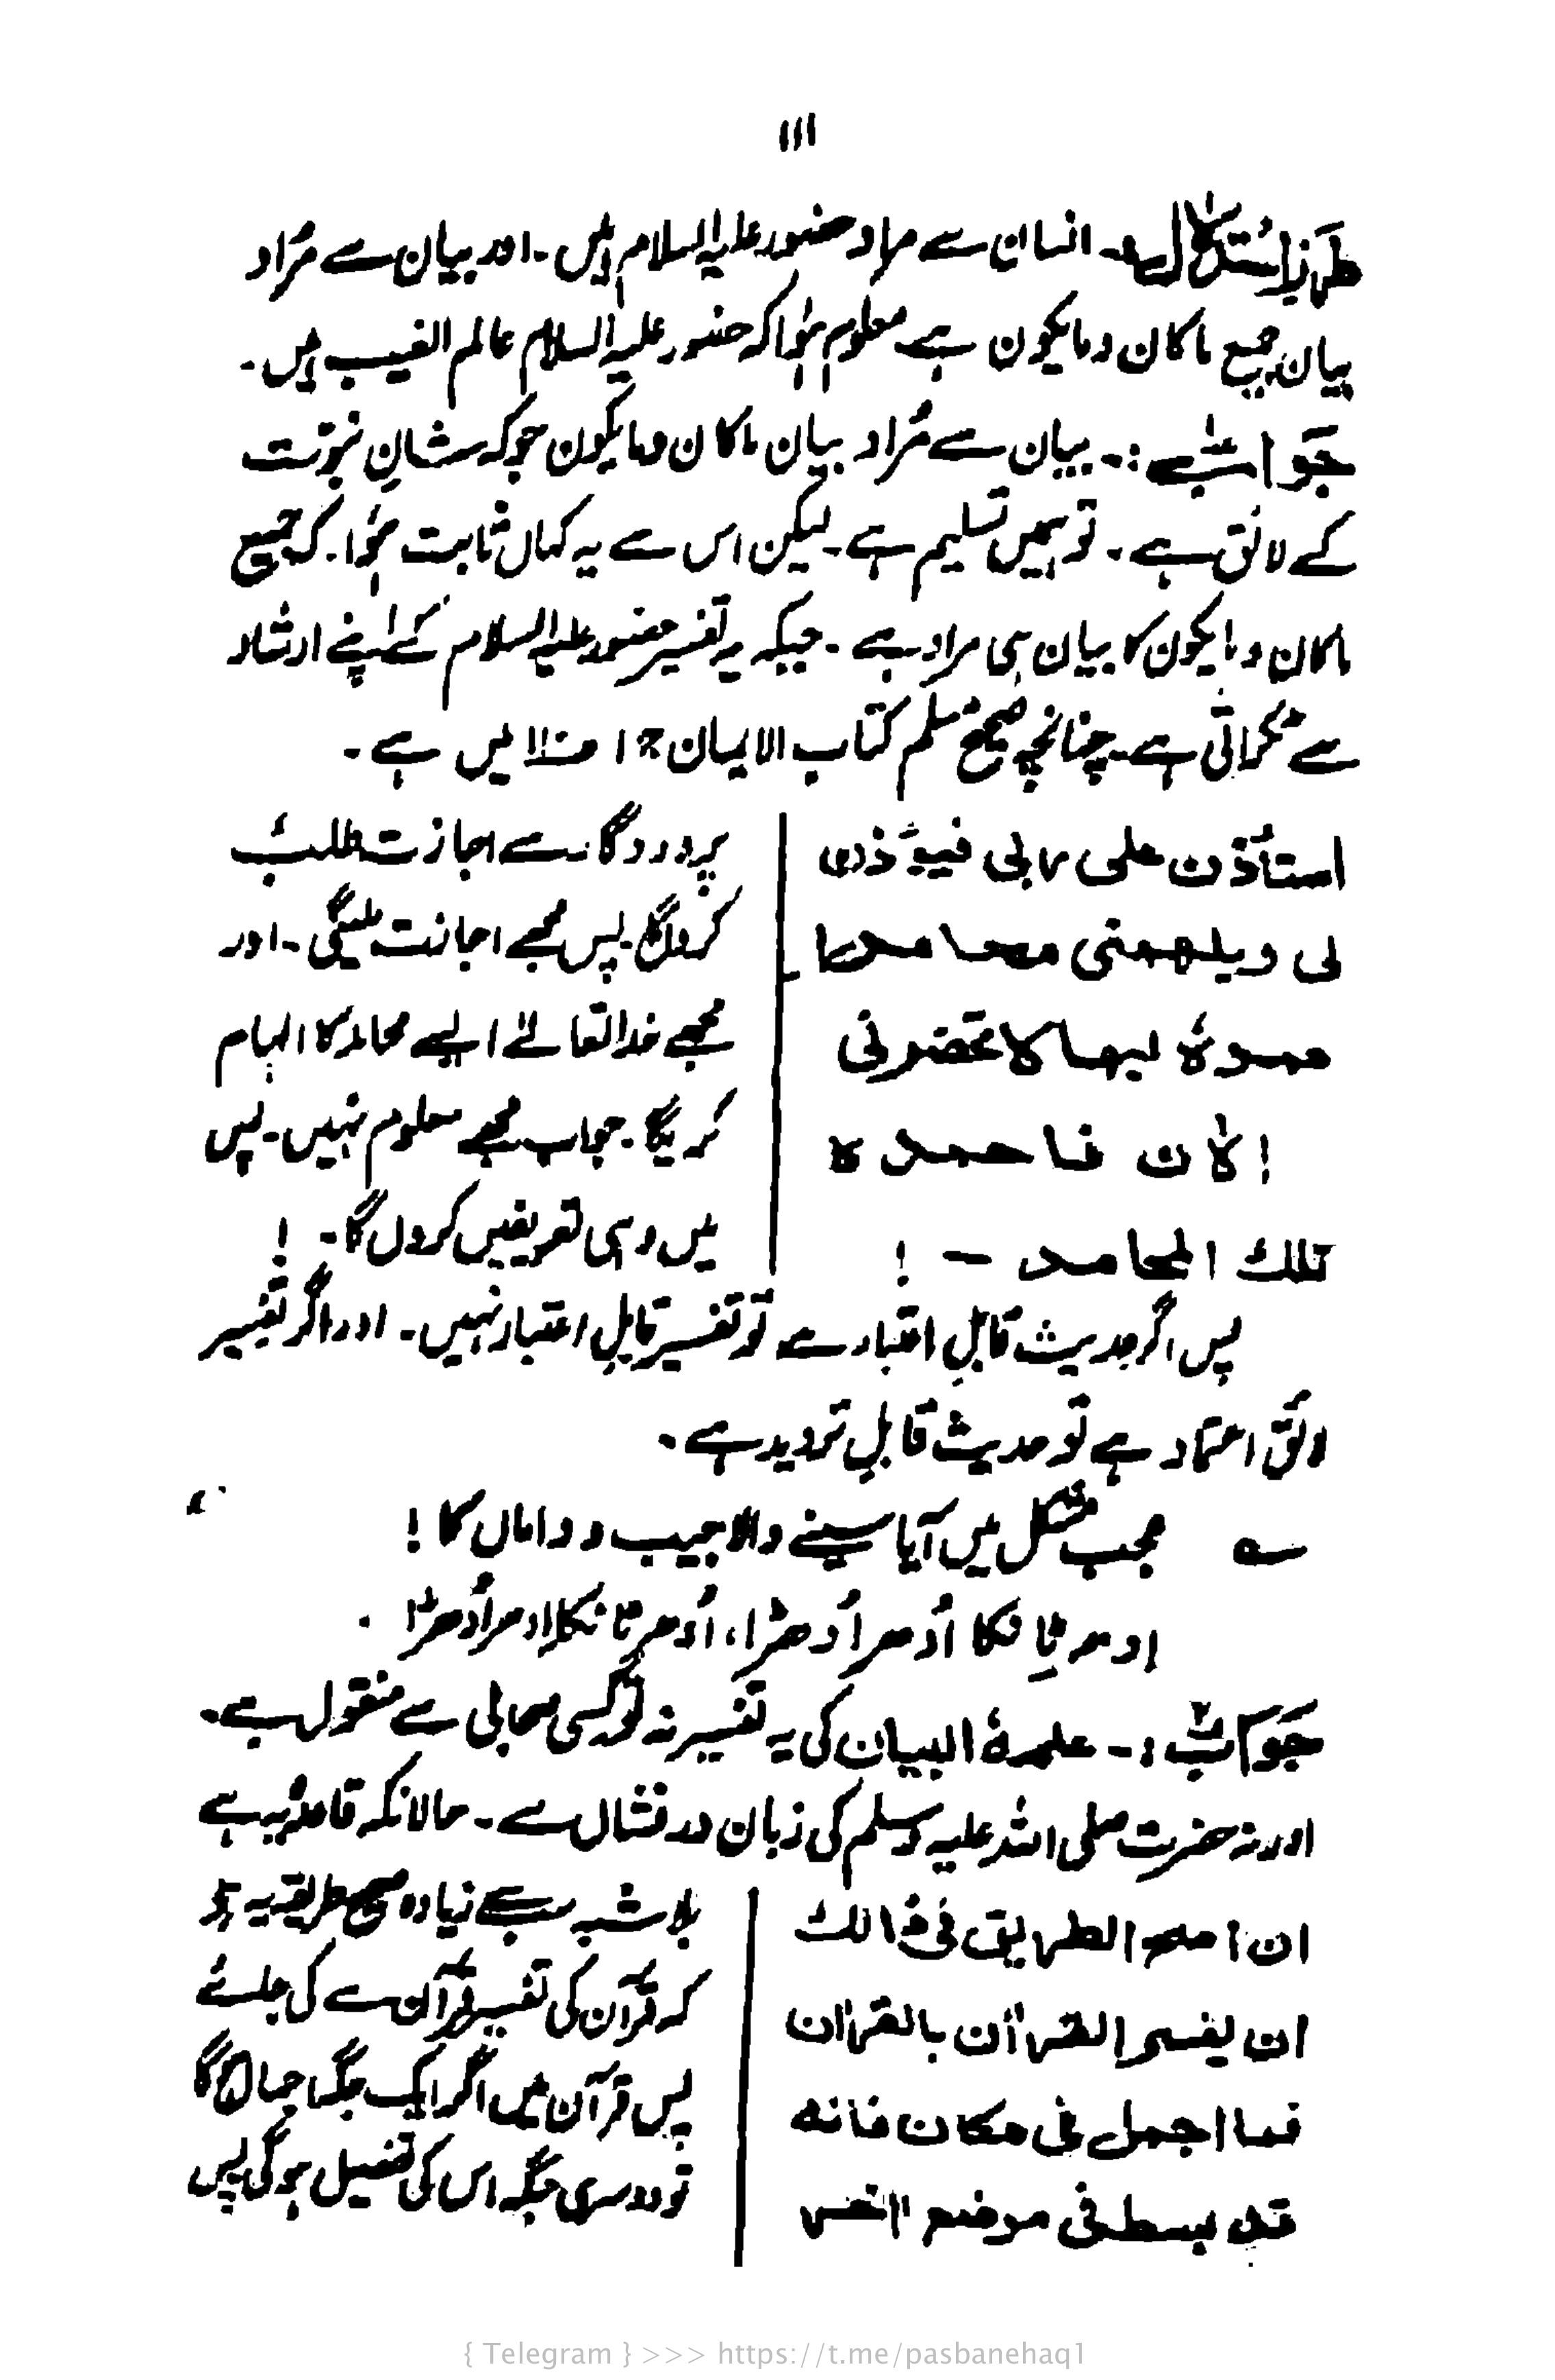 ۱۱۱
طرز استدلال :۔ انسان سے مراد حضور علیہ السلام ہیں ۔ اور بیان سے مُراد
بیان جمیع ماکان ومایکون ہے معلوم ہؤا کہ حضور علیہ السلام عالم الغیب ہیں ۔
جَوابؑ :۔ بیان سے مُراد بیان ماکان ومایکون جو کہ شانِ نبوّت
کے لائق ہے ۔ تو ہمیں تسلیم ہے ۔ لیکن اس سے یہ کہاں ثابت ہؤا ۔ کہ جمیع
ماکان ومایکون کا بیان ہی مراد ہے ۔ جبکہ یہ تفسیر حضور علیہ السلام کے اپنے ارشاد
سے ٹکراتی ہے ۔ چنانچہ صحیح مسلم کتاب الایمان ج۱ میں ہے ۔
استأذن علی ربی فیؤذن
لی ویلهمنی محامد
حمدہ بها لا تحضرنی
الآن فاحمدہ
تلك المحامد ــ !
پروردگار سے اجازت طلب
کرونگا ۔ پس مجھے اجازت ملیگی ۔ اور
مجھے خدا تعالےٰ ایسے محامد کا الہام
کریگا ۔ جو اب مجھے معلوم نہیں ۔ پس
میں وہی تعریفیں کروں گا ۔ !
پس اگر حدیث قابلِ اعتبار ہے تو تفسیر قابلِ اعتبار نہیں ۔ اور اگر تفسیر
لائق اعتماد ہے تو حدیث قابلِ تردید ہے ۔
؎ عجب مشکل میں آیا سینے والا جیب و داماں کا !
ادھر ٹانکا اُدھر اُدھڑا ، اُدھر ٹانکا ادھر اُدھڑا ۰
جَوابؑ۲ :۔ علمہٗ البیان کی یہ تفسیر نہ تو کسی صحابی سے منقول ہے ۔
اور نہ حضرت صلی اللہ علیہ وسلم کی زبان درفشاں سے ۔ حالانکہ قاعدہ یہ ہے
ان اصح الطریق فی ذالك
ان یفسر القراٰن بالقراٰن
فما اجمل فی مکان فانه
قد بسط فی موضع اٰخر
بلا شبہ سب سے زیادہ صحیح طریقہ یہ ہے
کہ قرآن کی تفسیر قرآن سے کی جائے
پس قرآن میں اگر ایک جگہ اجمال ہوگا
تو دوسری جگہ اس کی تفصیل ہوگی پس
{ Telegram } >>> https://t.me/pasbanehaq1